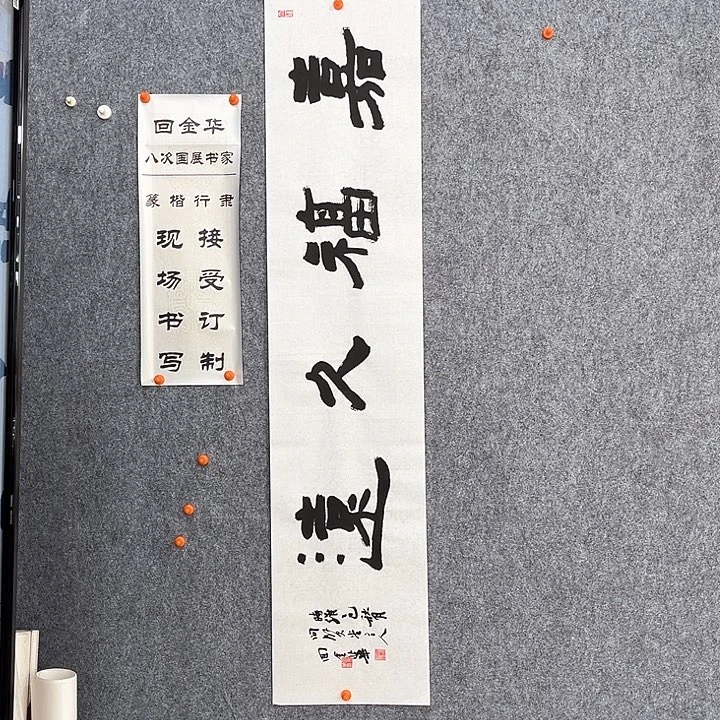 回金华
八次国展书家
篆楷行隶
现场书写
接受订制
嘉福久遠